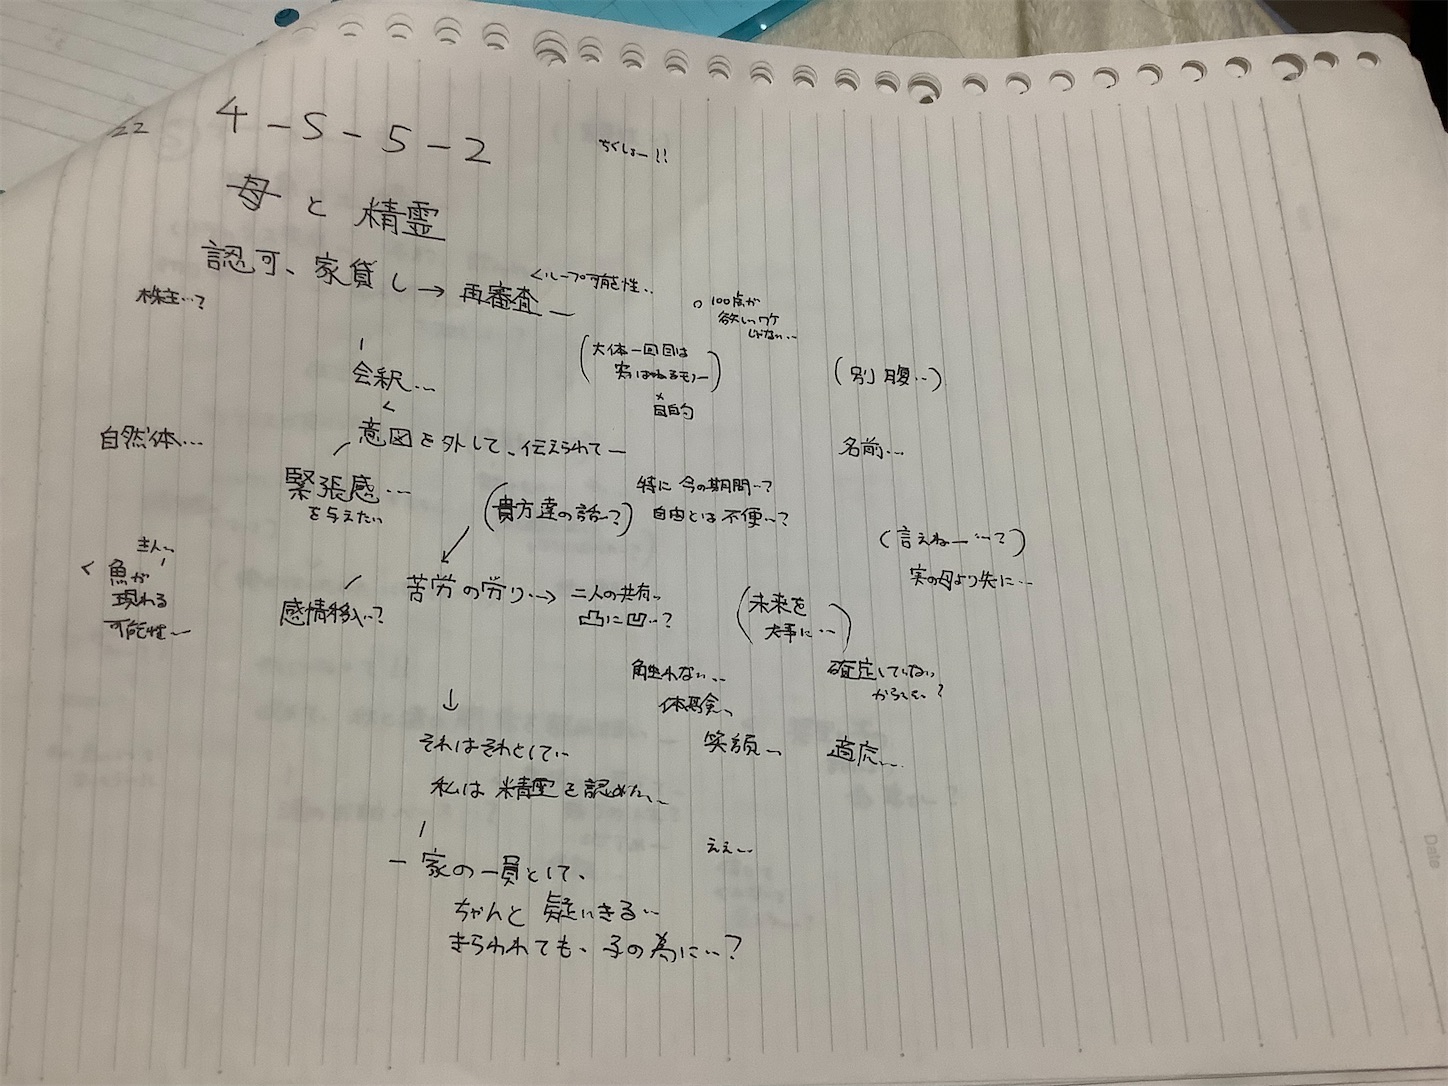 22
4-5-5-2
ちくしょー!!
母と精霊
認可、家貸し→再審査
<ループ可能性..
株主…?
。100点が
欲しいワケ
じゃない…
会釈…
(大体一回目は
(別腹…)
目的
自然体…
意図を外して、伝えられてー
名前…
緊張感…
を与えたい
(貴方達の話…?)
特に今の期間…?
自由とは不便…?
(言えねー…?)
実の母より先に…
<魚が
現れる
可能性…
感情移入…?
苦労の労り…→二人の共有、
凸に凹…?
(未来を
大事に…)
触れない…
体験、
確定していない
からこそ、?
↓
それはそれとして…
笑顔…
適応…
私は精霊を認めた、
ええ…
一家の一員として、
ちゃんと疑いきる…
きらわれても、子の為に…?